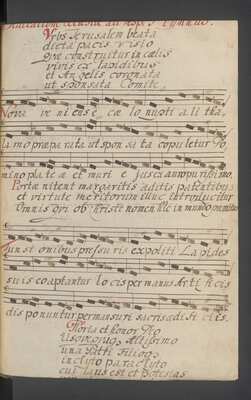 Vrbs Jerusalem beata
dicta pacis visio
que construitur in cœlis
vivis ex lapidibus
et Angelis coronata
ut sponsata Comite,
Nova ve ni ens e cœ lo nupti a li tha,
la mo præpa ra ta ut spon sa ta copu letur Do,
mino plateæ et muri e jus ex auro purissimo,
Portæ nitent margaritis aditis patentibus
et virtute meritorum illuc introducitur
Omnis qui ob Christi nomen hic in mundo
Tunsi onibus pressuris expoliti Lapides
suis coaptantur locis per manus Artificis
disponuntur permansuri sacris ædificiis.
Gloria et honor Deo
Usquequo Altissimo
una Patri Filioque
inclyto paraclyto
cui laus est et potestas